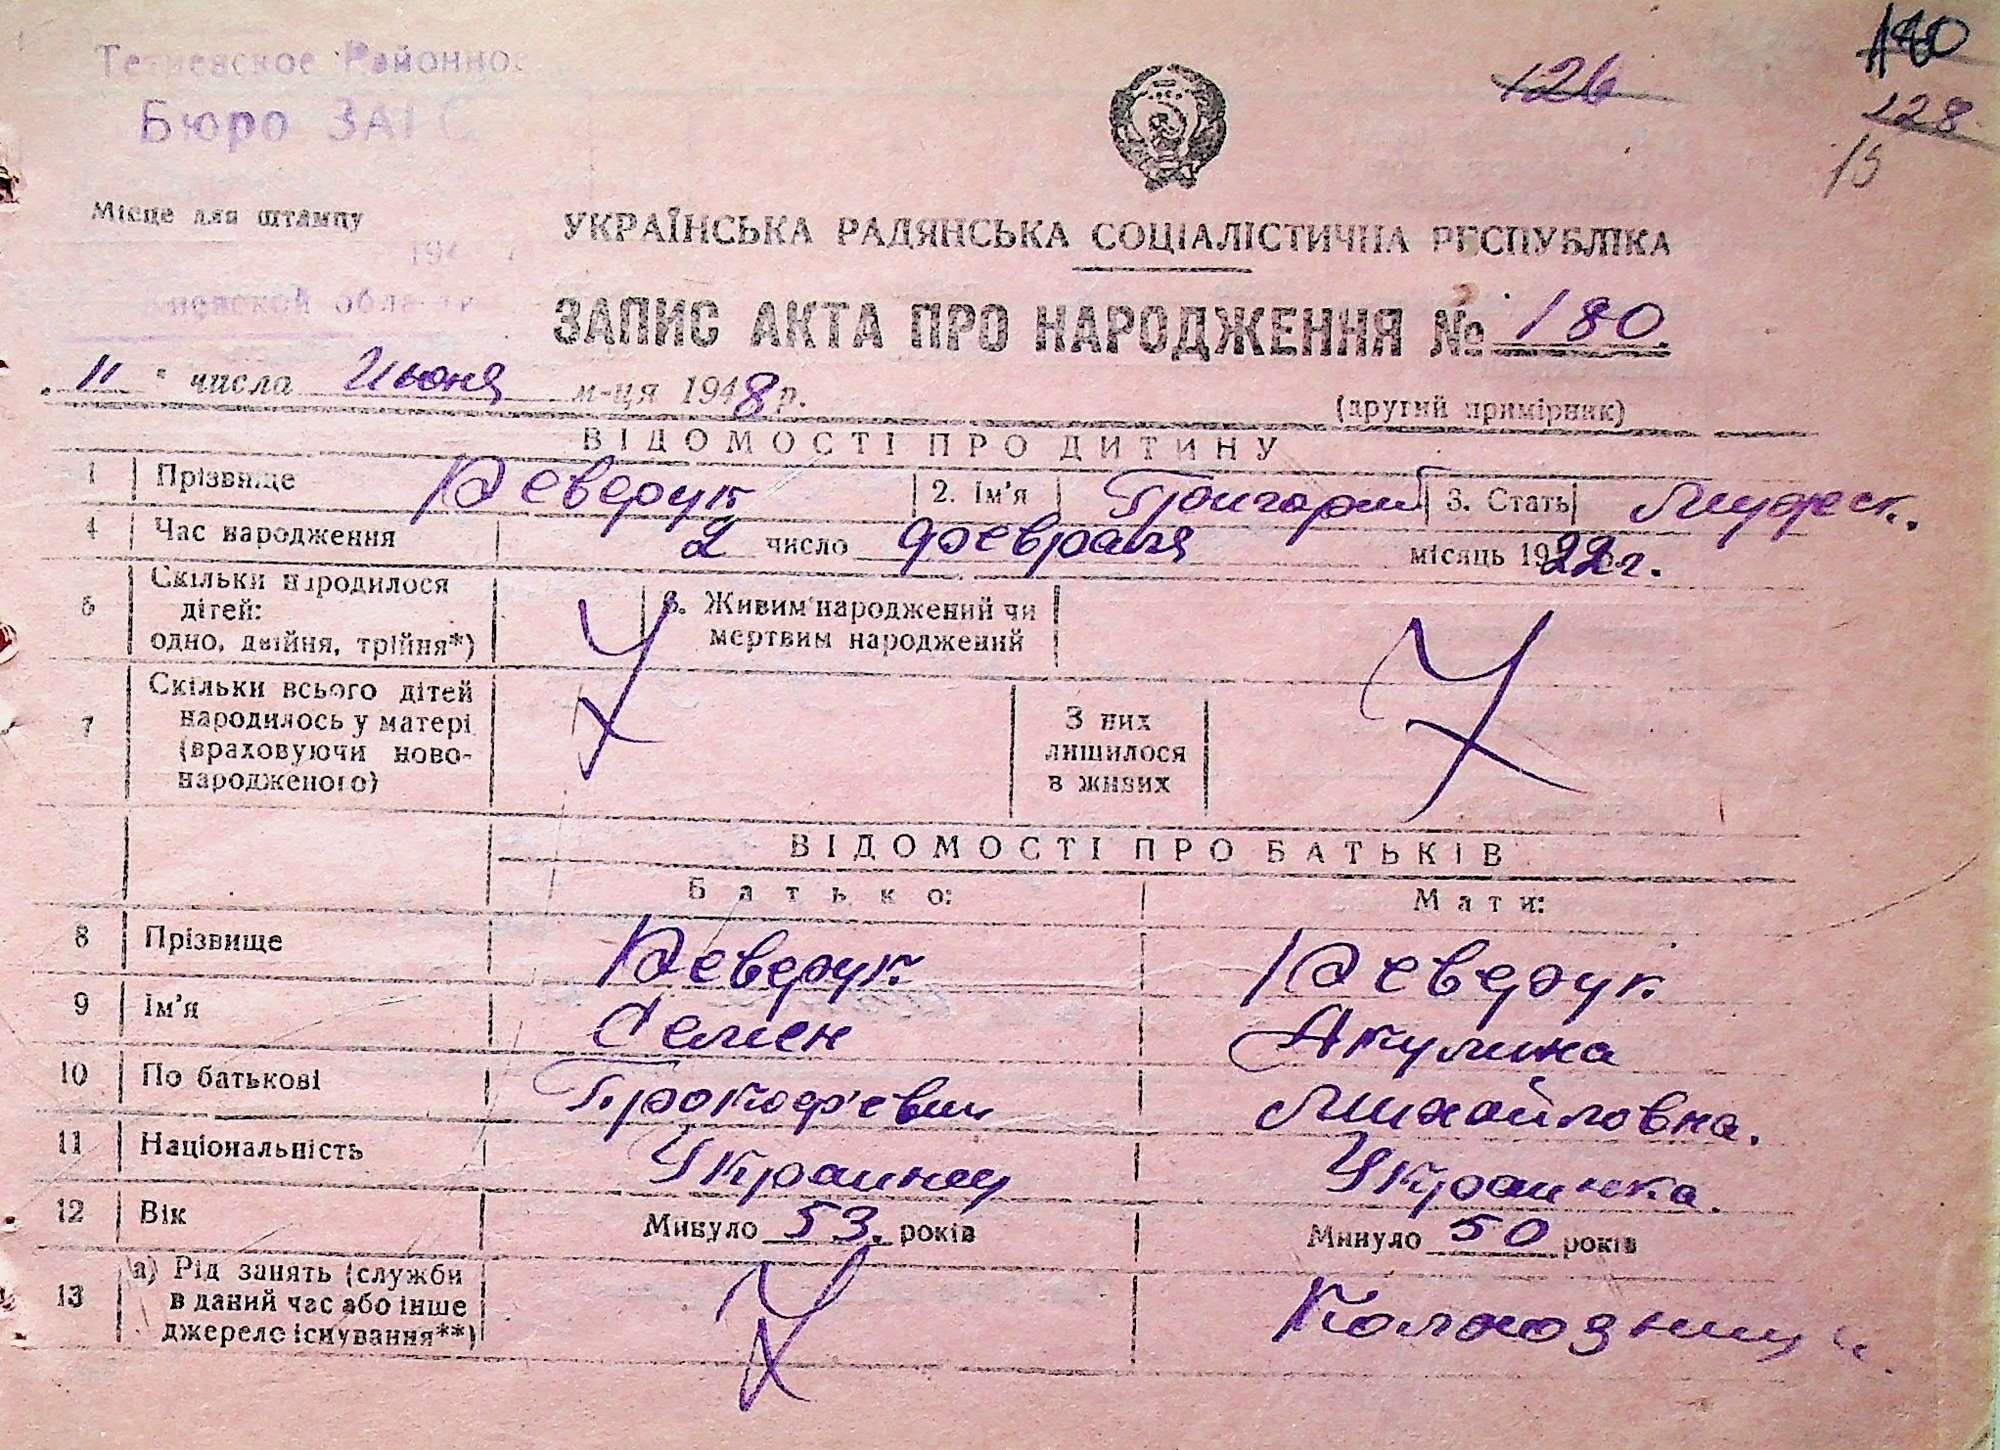 180
126
128
15
Тетиевское Районное
Бюро ЗАГС
Місце для штампу
УКРАЇНСЬКА РАДЯНСЬКА СОЦІАЛІСТИЧНА РЕСПУБЛІКА
области
ЗАПИС АКТА ПРО НАРОДЖЕННЯ № 180.
„11" числа Июня м-ця 1948 р.
(другий примірник)
ВІДОМОСТІ ПРО ДИТИНУ
1 Прізвище Реверук 2. Ім'я Григорий 3. Стать Мужск.
4 Час народження 2 число февраля місяць 1922г.
5 Скільки народилося дітей: одно, двійня, трійня*) 6. Живим народжений чи мертвим народжений
7 Скільки всього дітей народилось у матері (враховуючи ново-народженого) З них лишилося в живих
ВІДОМОСТІ ПРО БАТЬКІВ
Батько: Мати:
8 Прізвище Реверук Реверук
9 Ім'я Семен Акулина
10 По батькові Прокофьевич Михайловна.
11 Національність Украинец Украинка.
12 Вік Минуло 53. років Минуло 50 років
13 а) Рід занять (служби в даний час або інше джерело існування**) Колхозница.